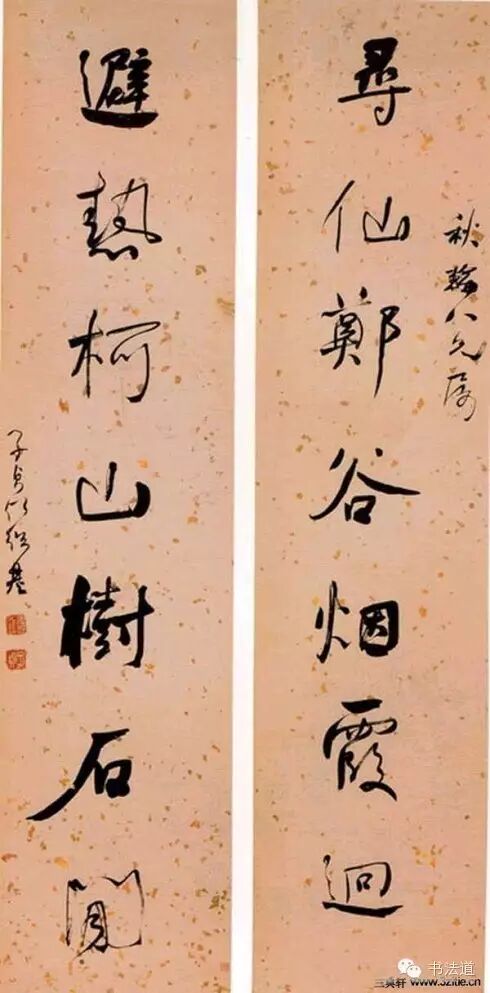 秋輪八兄屬
尋仙鄭谷烟霞迥
避熱柯山樹石閒
子貞何紹基
书法道